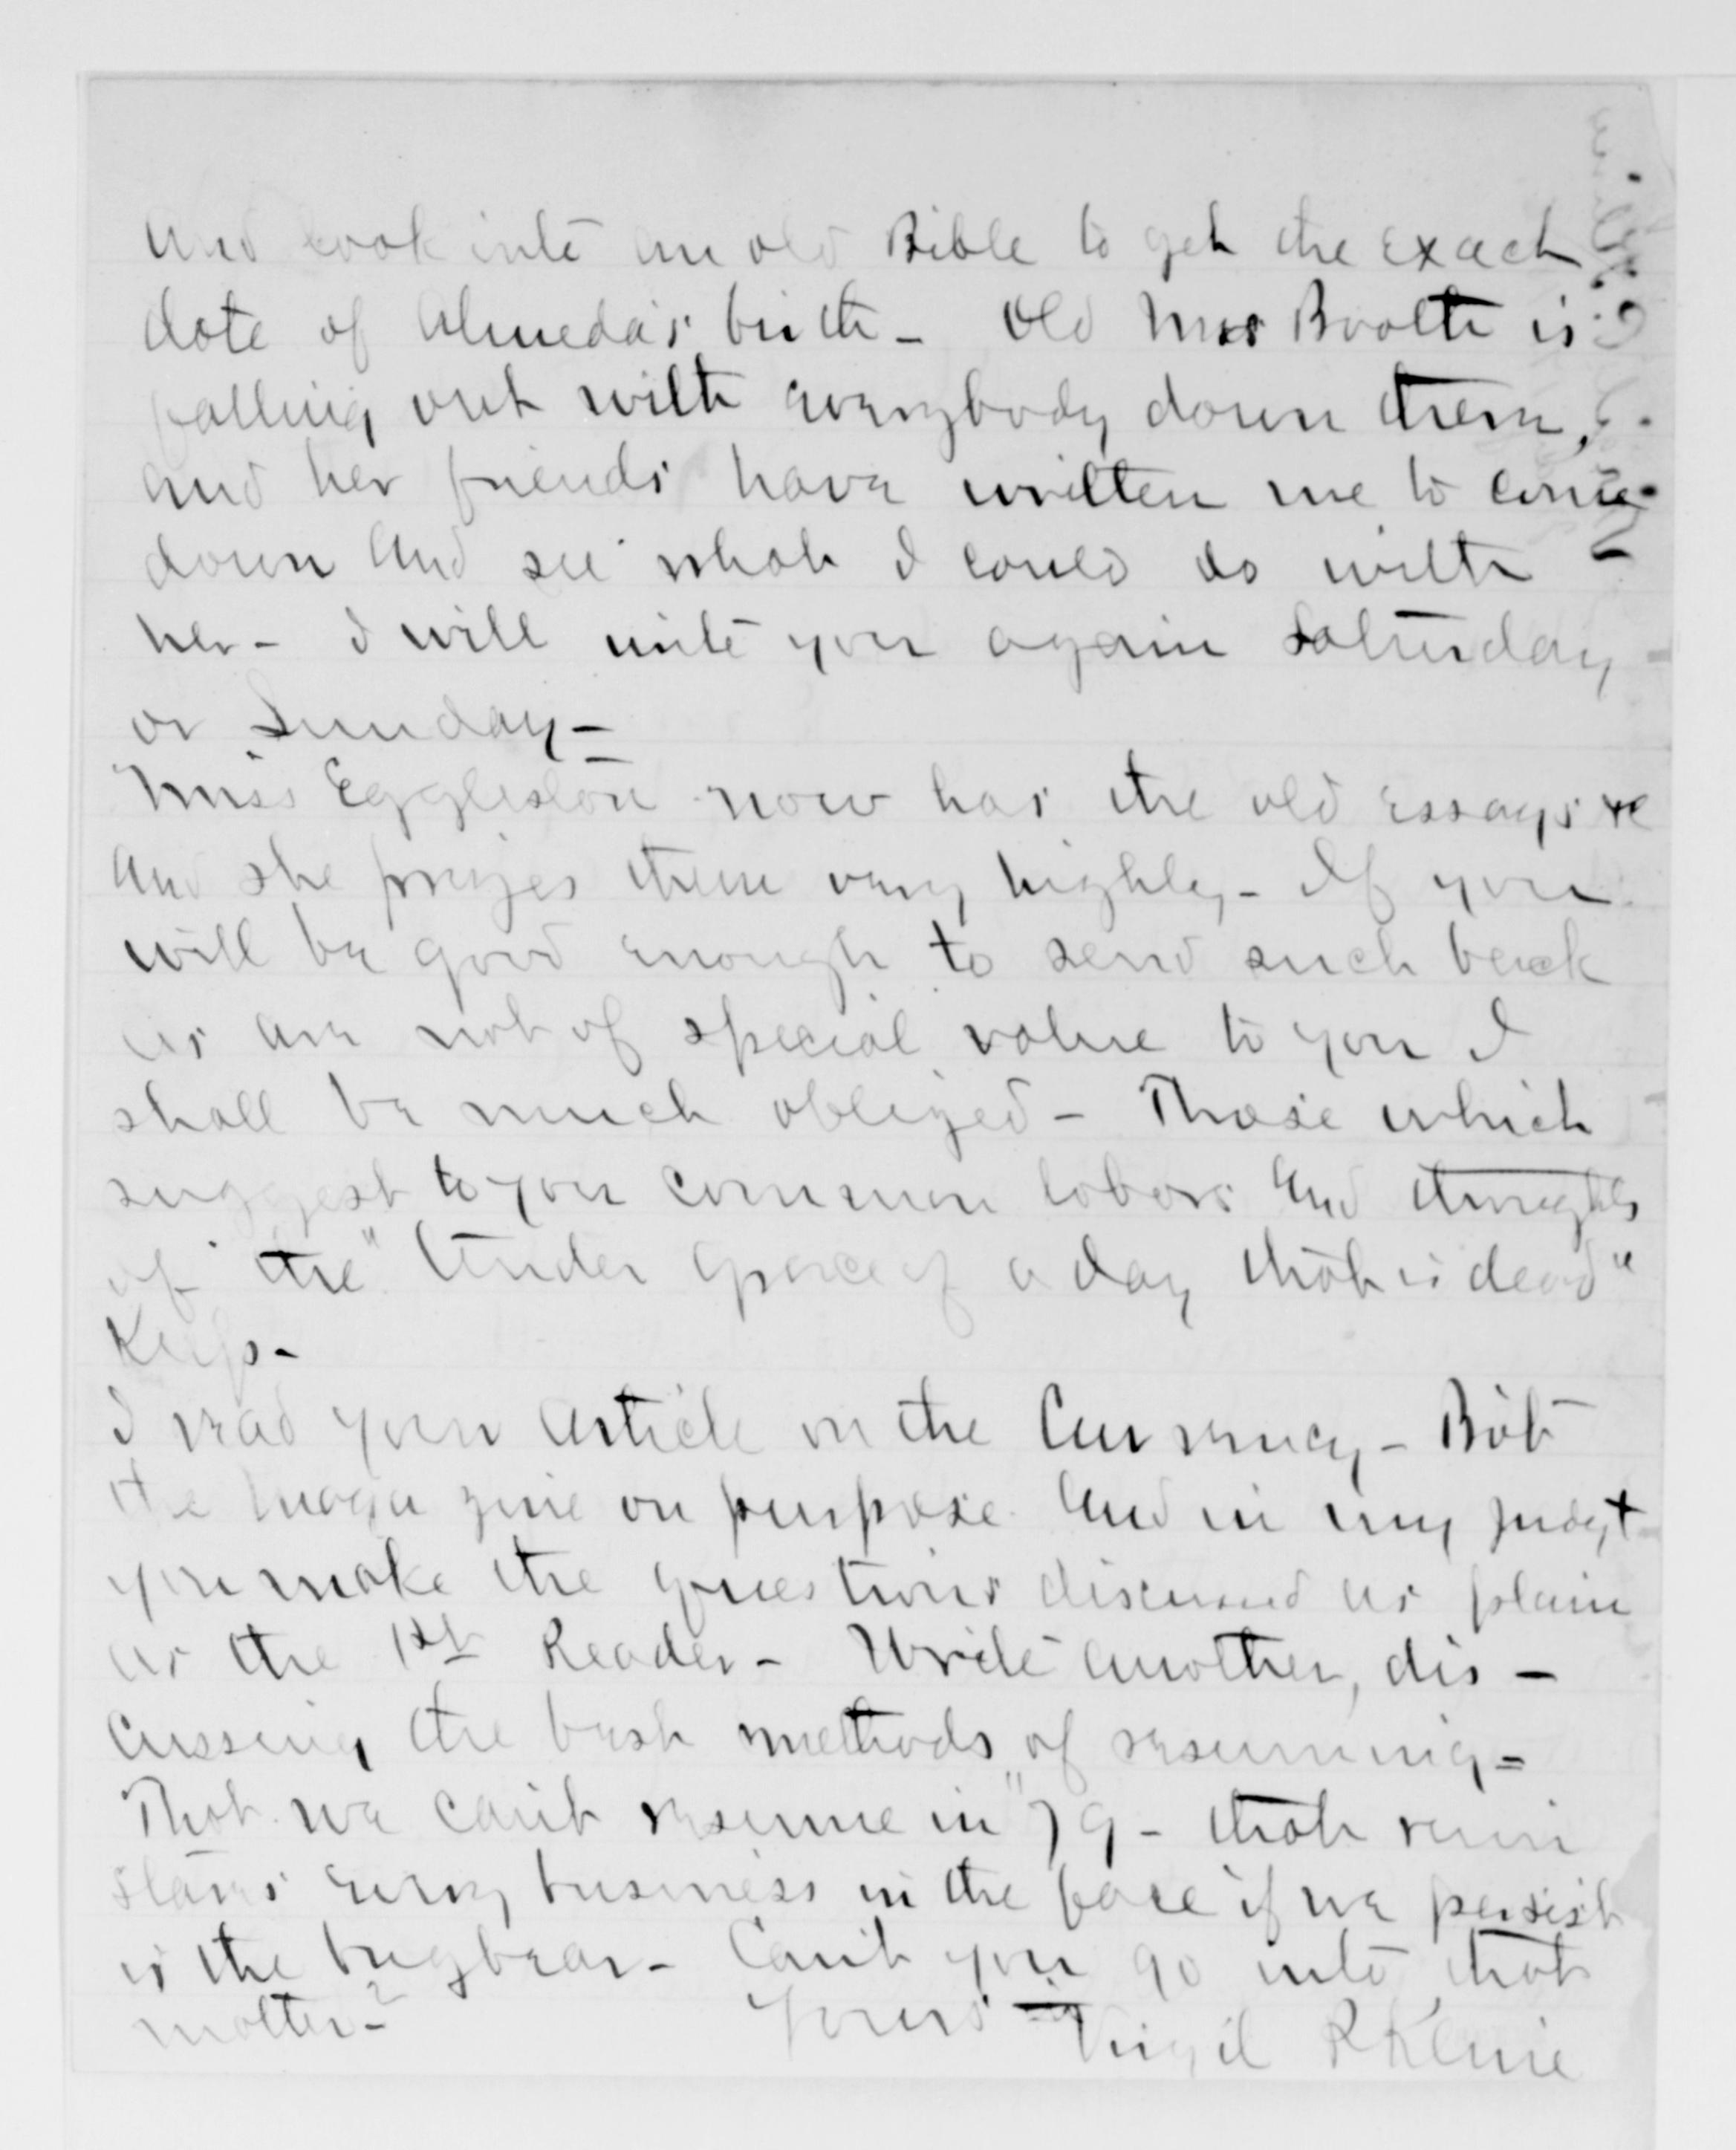 and look into an old Bible to get the exact
date of Almeda's birth – Old Mrs Booth is
falling out with everybody down there,
and her friends have written me to come
down and see what I could do with
her – I will write you again Saturday
or Sunday –
Miss Eggleston now has the old essays &c
and she prizes them very highly – If you
will be good enough to send such back
as are not of special value to you I
shall be much obliged – Those which
suggest to you common labors and thoughts
of the "tender grace of a day that is dead"
Keep –
I read your article on the Currency – Bo't
the magazine on purpose and in my judgt
you make the questions discussed as plain
as the 1st Reader – Write another, dis –
cussing the best methods of resuming –
That we can't resume in "79 – that ruin
stares every business in the face if we persist
is the bugbear – Can't you go into that
matter?
Yours
Virgil P Kline